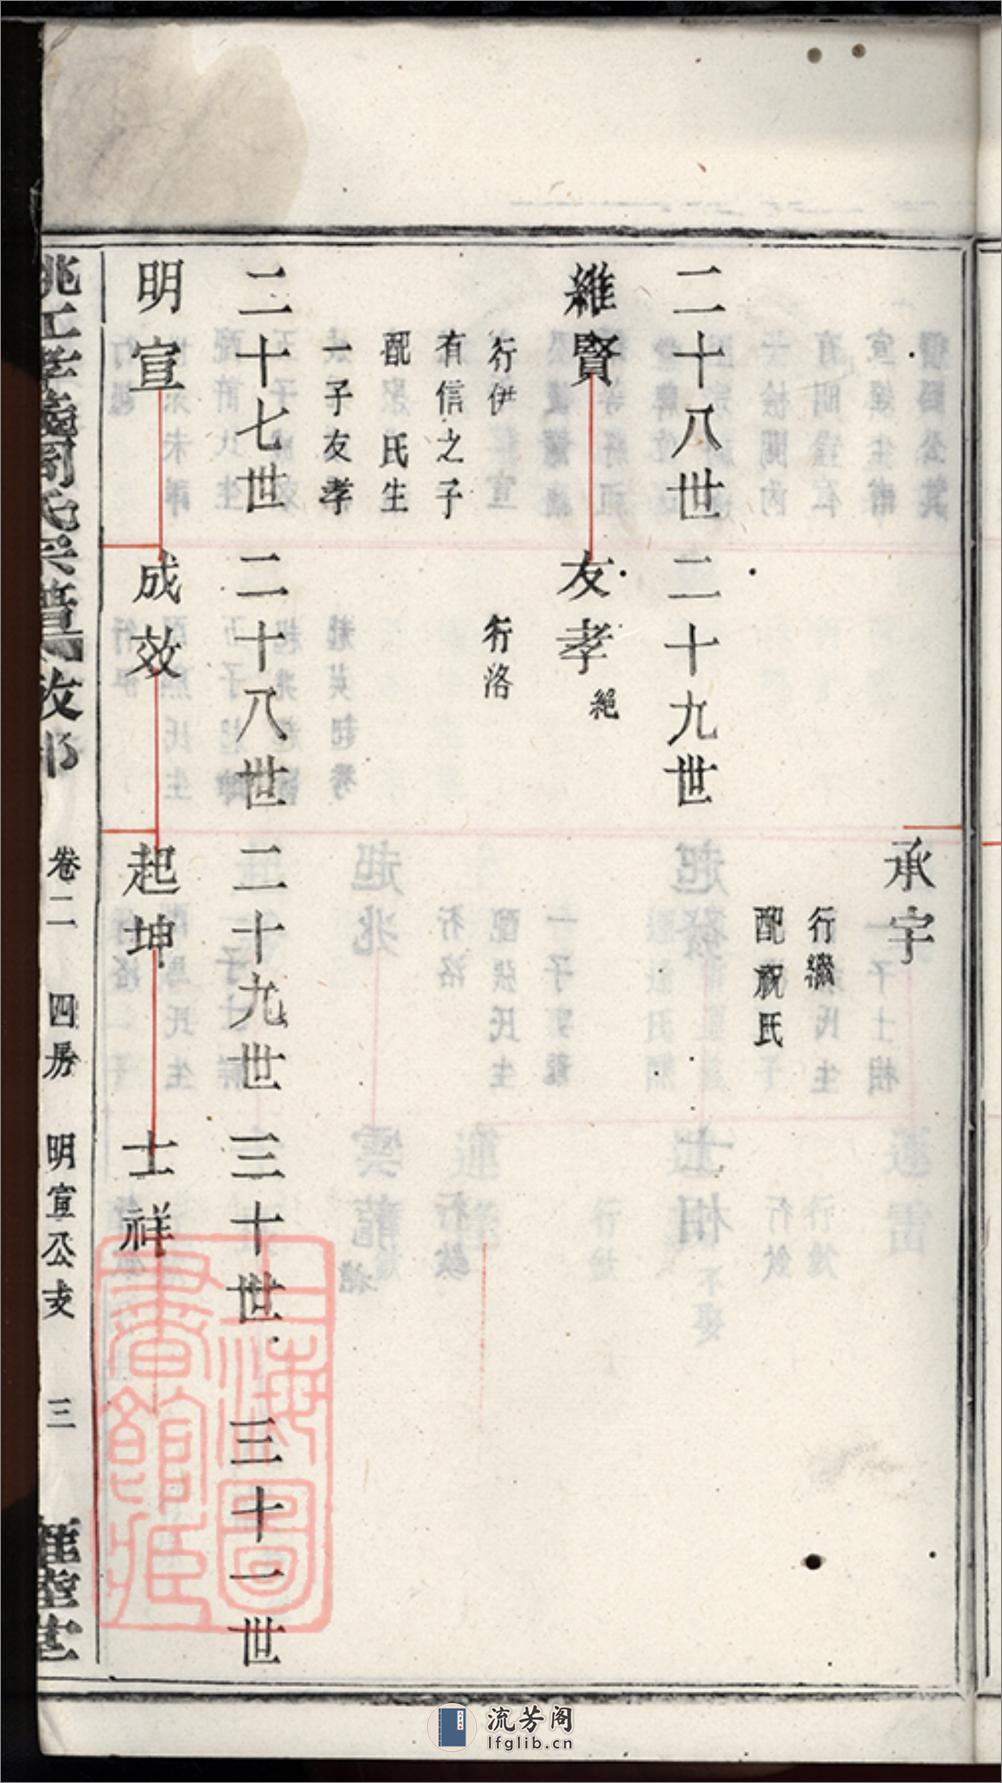 承宇
行繼
配祝氏
二十八世 二十九世
維賢 友孝 絕
行伊 行洛
有信之子
配 氏生
一子友孝
二十七世 二十八世 二十九世 三十世 三十一世
明宣 成效 起坤 士祥
周氏宗譜 卷二 四房 明宣公支 三
上海圖書館藏
流芳阁
lfglib.cn